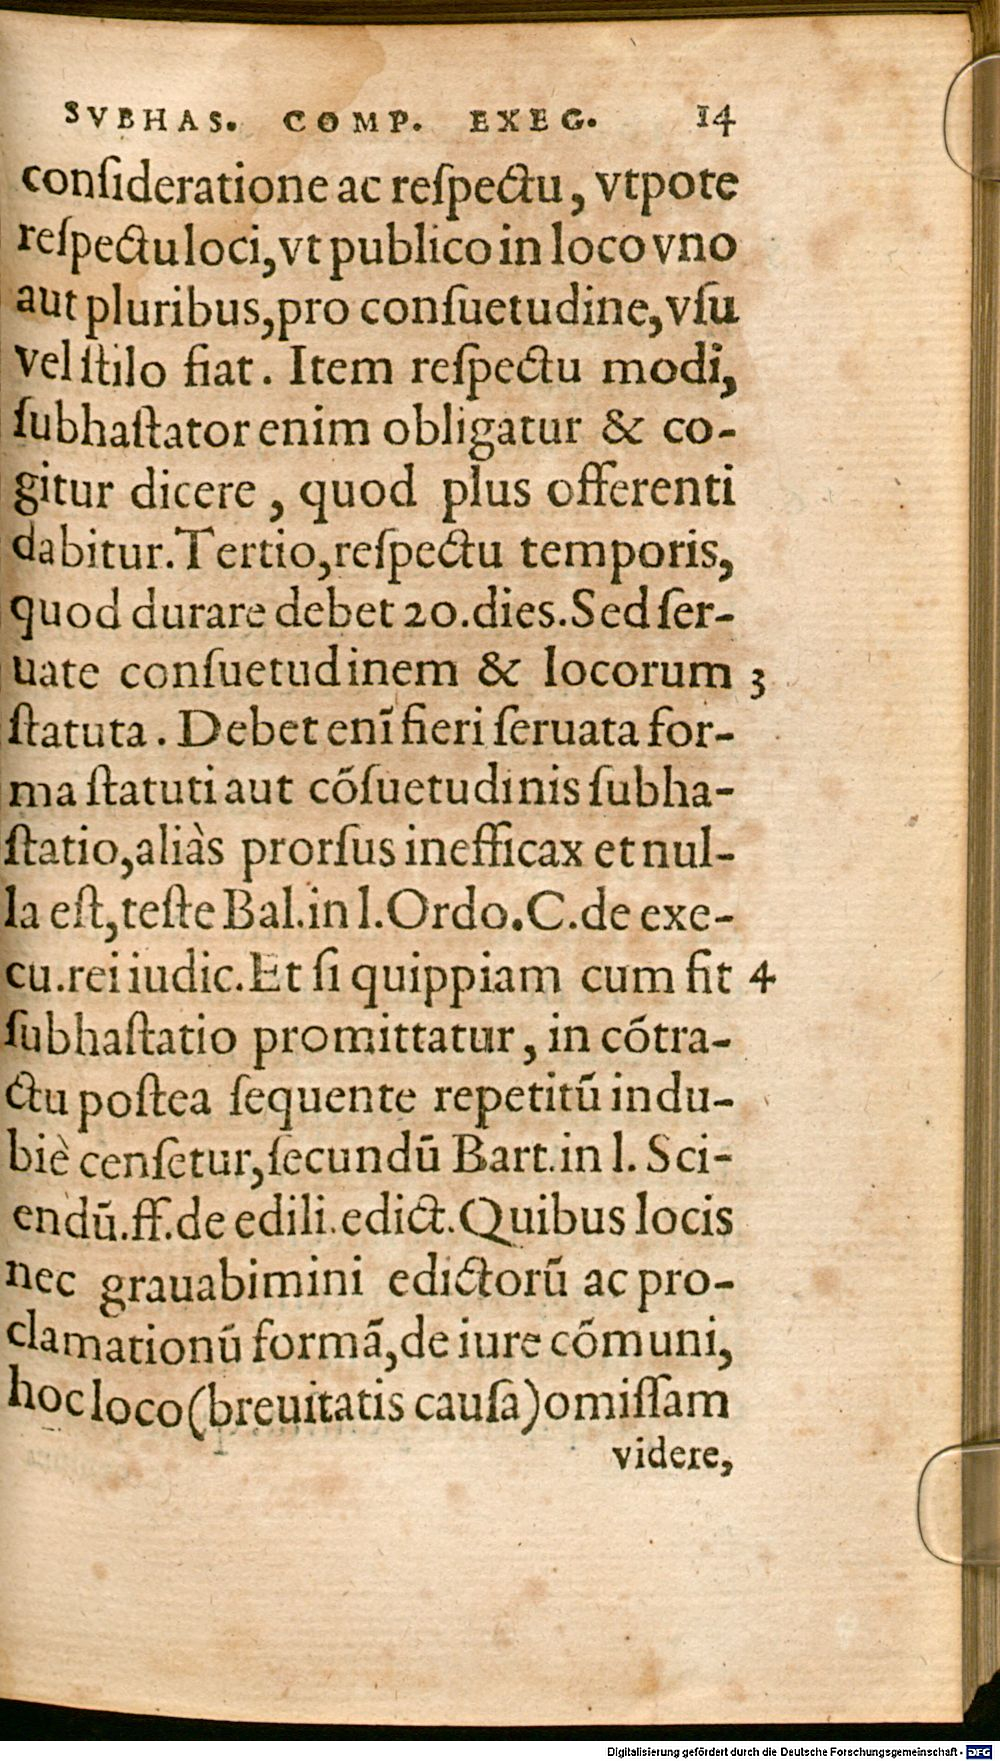 SVBHAS. COMP. EXEG. 14
conſideratione ac reſpectu, vtpote
reſpectu loci, vt publico in loco vno
aut pluribus, pro conſuetudine, vſu
vel ſtilo fiat. Item reſpectu modi,
ſubhaſtator enim obligatur & co-
gitur dicere, quod plus offerenti
dabitur. Tertio, reſpectu temporis,
quod durare debet 20. dies. Sed ſer-
uate conſuetudinem & locorum 3
ſtatuta. Debet enī fieri ſeruata for-
ma ſtatuti aut cōſuetudinis ſubha-
ſtatio, aliàs prorſus inefficax et nul-
la eſt, teſte Bal. in l. Ordo. C. de exe-
cu. rei iudic. Et ſi quippiam cum fit 4
ſubhaſtatio promittatur, in cōtra-
ctu poſtea ſequente repetitū indu-
biè cenſetur, ſecundū Bart. in l. Sci-
endū. ff. de edili. edict. Quibus locis
nec grauabimini edictorū ac pro-
clamationū formā, de iure cōmuni,
hoc loco (breuitatis cauſa) omiſſam
videre,
Digitalisierung gefördert durch die Deutsche Forschungsgemeinschaft - DFG